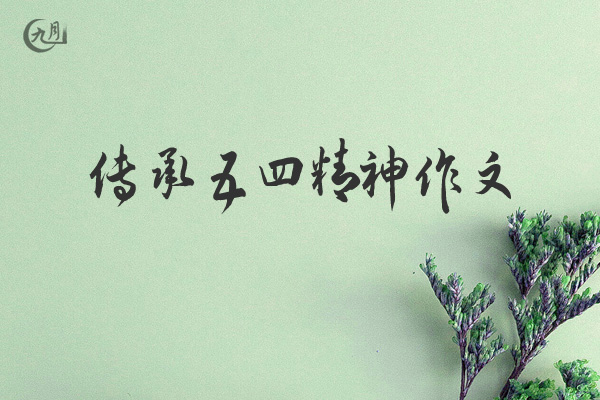 九月
传承五四精神作文